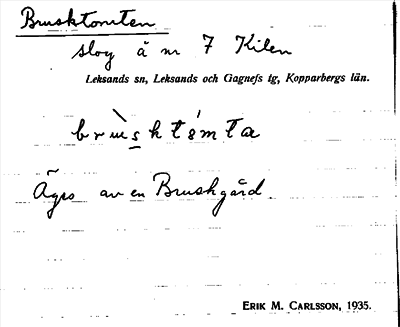 Brusktomten
slog å nr 7 Kilen
Leksands sn, Leksands och Gagnefs tg, Kopparbergs län.
Äges av en Bruskgård.
ERIK M. CARLSSON, 1935.